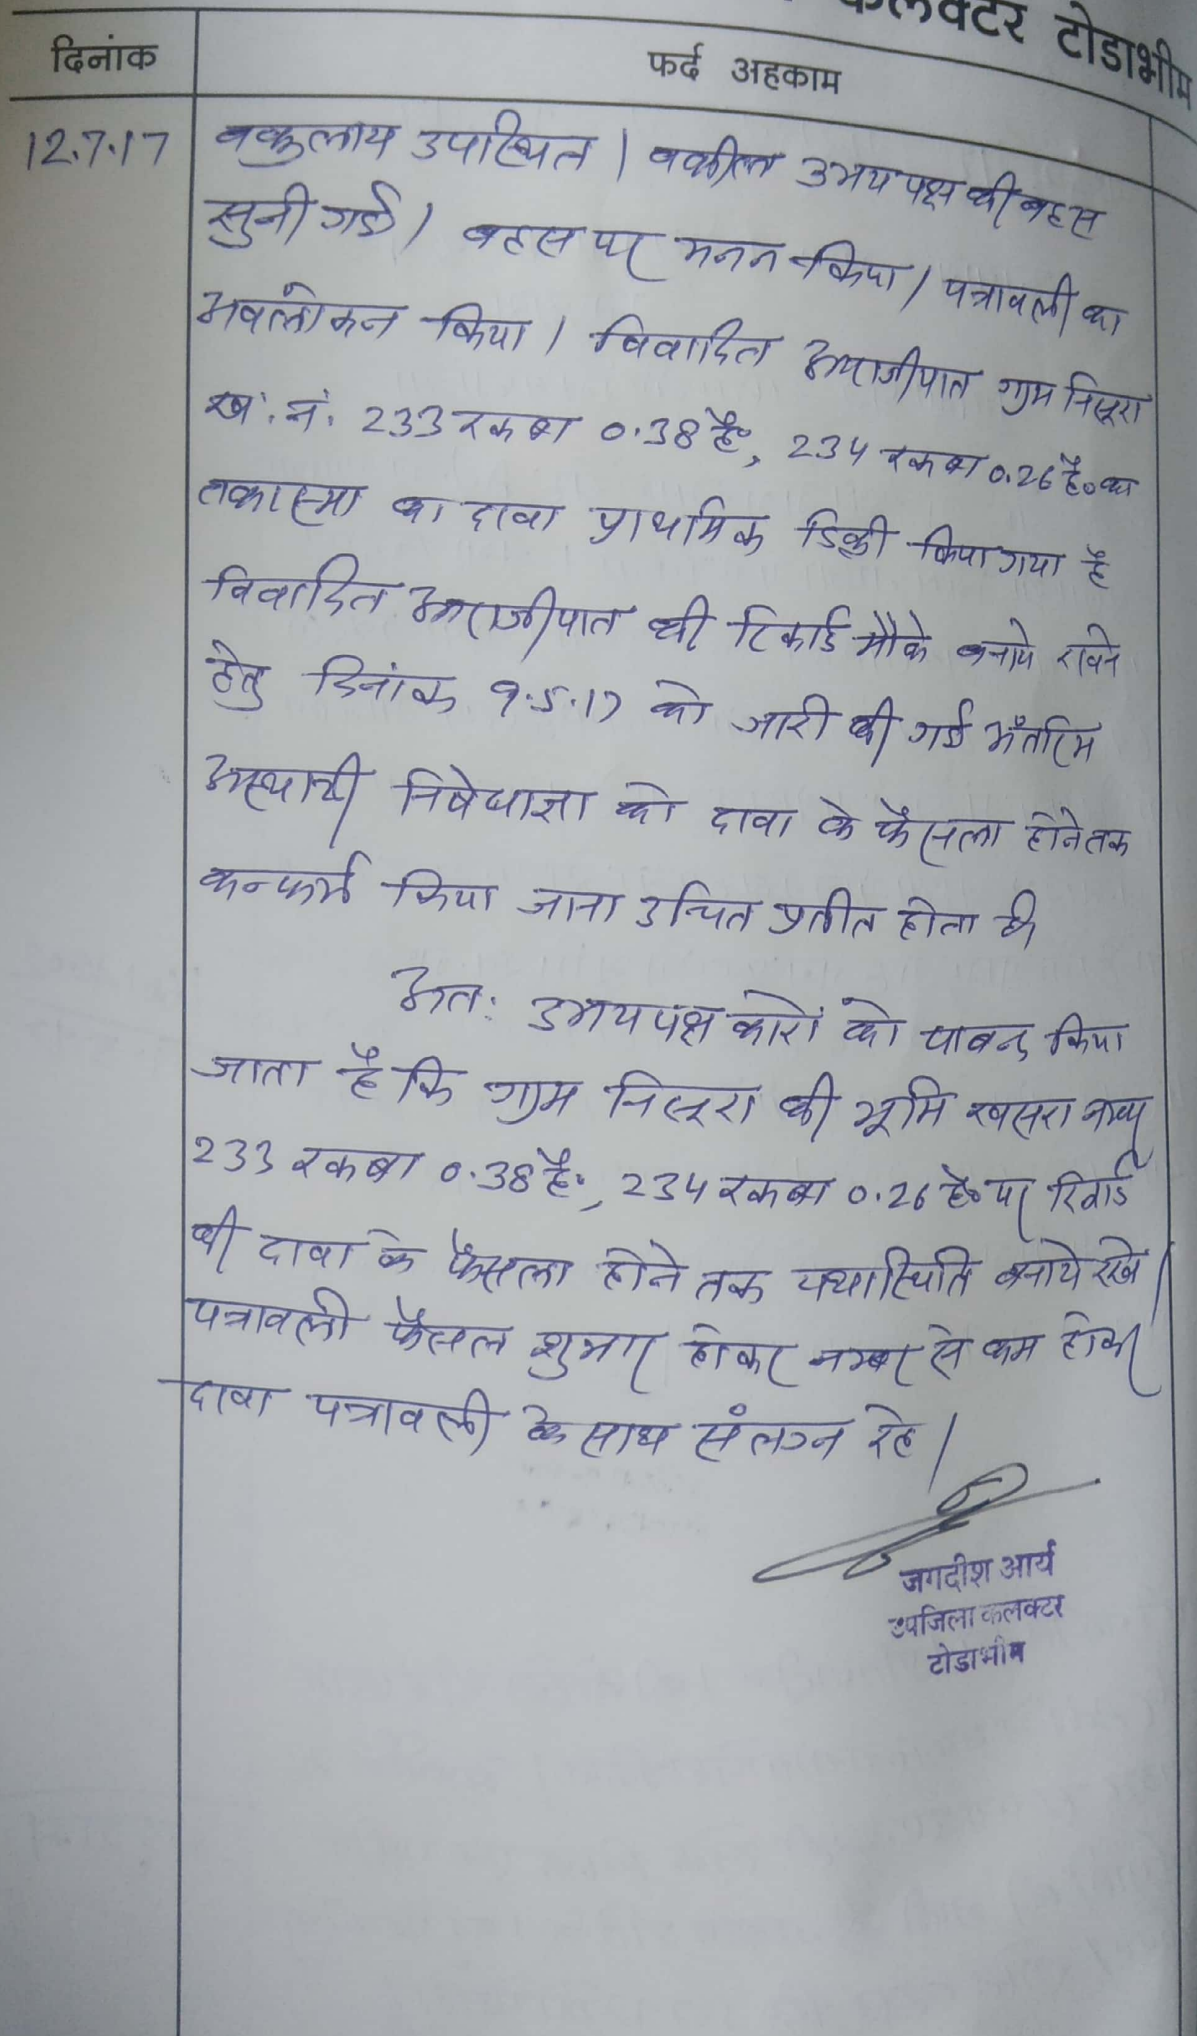 कलक्टर टोडाभीम
दिनांक
फर्द अहकाम
12.7.17
वकुलाय उपस्थित । वकील उभयपक्ष की बहस
सुनी गई । बहस पर मनन किया । पत्रावली का
अवलोकन किया । विवादित आराजीयात ग्राम निसूरा
ख. नं. 233 रकबा 0.38 है०, 234 रकबा 0.26 है० का
तकास्मा का दावा प्राथमिक डिक्री किया गया है
विवादित आराजीयात की रिकार्ड मौके बनाये रखने
हेतु दिनांक 9.5.17 को जारी की गई अंतरिम
अस्थायी निषेधाज्ञा को दावा के फैसला होने तक
कन्फर्म किया जाना उचित प्रतीत होता है
अत: उभयपक्षकारों को पाबन्द किया
जाता है कि ग्राम निसूरा की भूमि खसरा नम्बर
233 रकबा 0.38 है०, 234 रकबा 0.26 है० पर रिकार्ड
की दावा के फैसला होने तक यथास्थिति बनाये रखे ।
पत्रावली फैसल शुमार होकर नम्बर से कम होकर
दावा पत्रावली के साथ संलग्न रहे ।
जगदीश आर्य
उपजिला कलक्टर
टोडाभीम